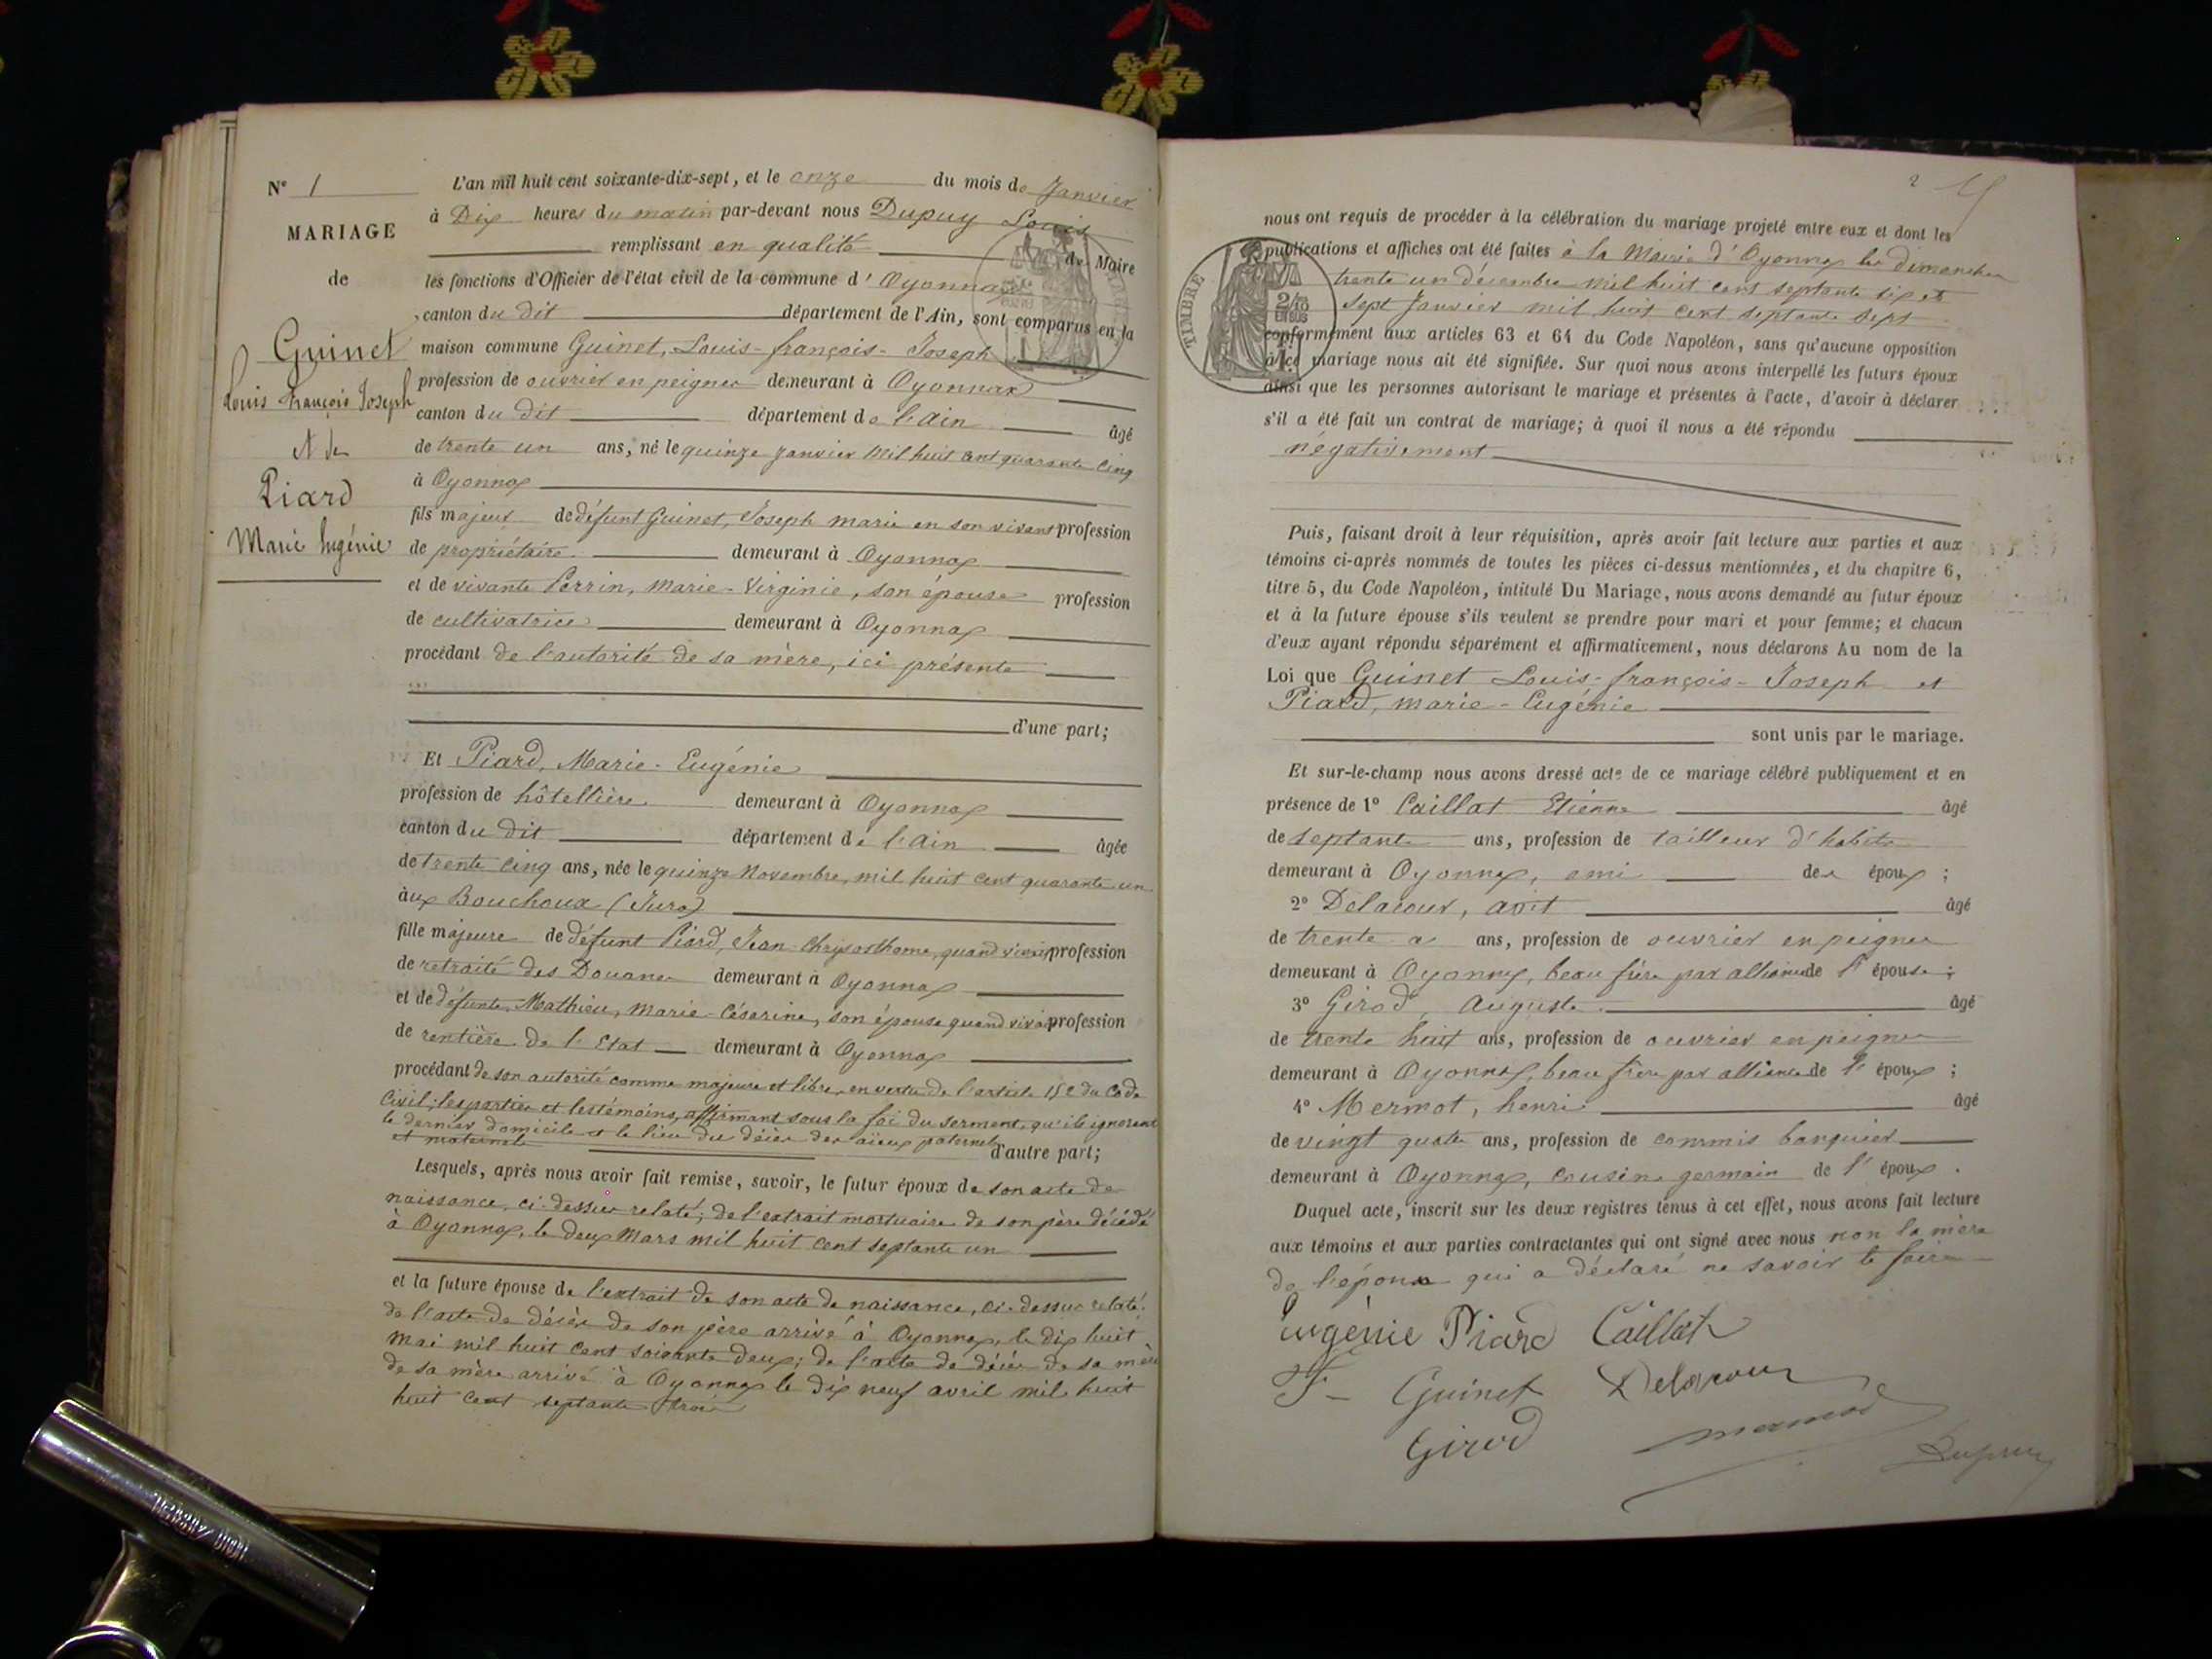 N° 1
MARIAGE
de
Guinet
Louis François Joseph
et de
Piard
Marie Eugénie
L'an mil huit cent soixante-dix-sept, et le onze du mois de Janvier
à Dix heures du matin par-devant nous Dupuy Louis
remplissant en qualité de Maire
les fonctions d'Officier de l'état civil de la commune d' Oyonnax
canton du dit département de l'Ain, sont comparus en la
maison commune Guinet, Louis-françois-Joseph
profession de ouvrier en peignes demeurant à Oyonnax
canton du dit département de l'Ain âgé
de trente un ans, né le quinze Janvier mil huit cent quarante cinq
à Oyonnax
fils majeur de défunt Guinet, Joseph marie en son vivant profession
de propriétaire demeurant à Oyonnax
et de vivante Perrin, Marie-Virginie, son épouse profession
de cultivatrice demeurant à Oyonnax
procédant de l'autorité de sa mère, ici présente
d'une part;
Et Piard, Marie-Eugénie
profession de hôtellière demeurant à Oyonnax
canton du dit département de l'Ain âgée
de trente cinq ans, née le quinze Novembre, mil huit cent quarante un
aux Bouchoux (Jura)
fille majeure de défunt Piard, Jean-Chrysosthome, quand vivait profession
de retraité des Douanes demeurant à Oyonnax
et de défunte Mathieu, Marie-Césarine, son épouse quand vivait profession
de rentière de l'Etat demeurant à Oyonnax
procédant de son autorité comme majeure et libre, en vertu de l'article 152 du Code
Civil; les parties et les témoins, affirmant sous la foi du serment, qu'ils ignorent
le dernier domicile et le lieu du décès des aïeux paternels
et maternels d'autre part;
Lesquels, après nous avoir fait remise, savoir, le futur époux de son acte de
naissance, ci-dessus relaté; de l'extrait mortuaire de son père décédé
à Oyonnax, le deux Mars mil huit cent septante un
et la future épouse de l'extrait de son acte de naissance, ci-dessus relaté.
de l'acte de décès de son père arrivé à Oyonnax, le dix huit
Mai mil huit cent soixante deux; de l'acte de décès de sa mère
de sa mère arrivé à Oyonnax le dix neuf avril mil huit
huit cent septante trois
2
nous ont requis de procéder à la célébration du mariage projeté entre eux et dont les
publications et affiches ont été faites à la Mairie d'Oyonnax les dimanches
trente un décembre mil huit cent septante six et
sept Janvier mil huit cent septante sept
TIMBRE
conformément aux articles 63 et 64 du Code Napoléon, sans qu'aucune opposition
à ce mariage nous ait été signifiée. Sur quoi nous avons interpellé les futurs époux
ainsi que les personnes autorisant le mariage et présentes à l'acte, d'avoir à déclarer
s'il a été fait un contrat de mariage; à quoi il nous a été répondu
négativement
Puis, faisant droit à leur réquisition, après avoir fait lecture aux parties et aux
témoins ci-après nommés de toutes les pièces ci-dessus mentionnées, et du chapitre 6,
titre 5, du Code Napoléon, intitulé Du Mariage, nous avons demandé au futur époux
et à la future épouse s'ils veulent se prendre pour mari et pour femme; et chacun
d'eux ayant répondu séparément et affirmativement, nous déclarons Au nom de la
Loi que Guinet Louis-françois-Joseph et
Piard, marie-Eugénie
sont unis par le mariage.
Et sur-le-champ nous avons dressé acte de ce mariage célébré publiquement et en
présence de 1° Caillat Etienne âgé
de septante ans, profession de tailleur d'habits
demeurant à Oyonnax, ami des époux;
2° Delacour, avit âgé
de trente ans, profession de ouvrier en peignes
demeurant à Oyonnax, beau frère par alliance de l'épouse;
3° Girod, Auguste âgé
de trente huit ans, profession de ouvrier en peignes
demeurant à Oyonnax, beau frère par alliance de l'époux;
4° Mermot, henri âgé
de vingt quatre ans, profession de commis banquier
demeurant à Oyonnax, cousin germain de l'époux.
Duquel acte, inscrit sur les deux registres tenus à cet effet, nous avons fait lecture
aux témoins et aux parties contractantes qui ont signé avec nous non la mère
de l'époux qui a déclaré ne savoir le faire
Eugénie Piard Caillat
F Guinet Delacour
Girod Mermod
Dupuy